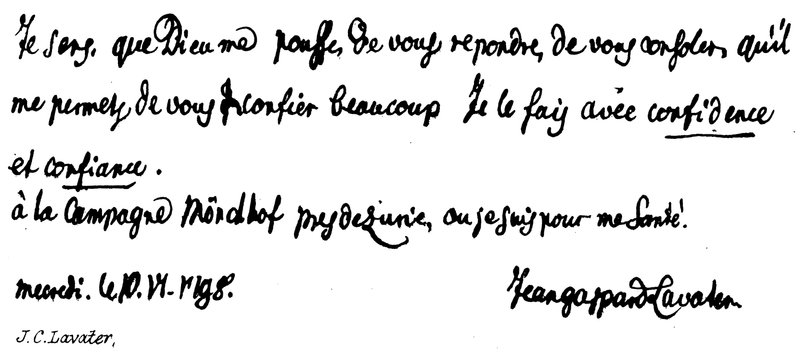 Je sens, que Dieu me pousse, de vous repondre, de vous consoler, qu'il
me permet, de vous confier beaucoup Je le fais avec confidence
et confiance.
à la Campagne Mönchhof pres de Zuric, ou je suis pour ma Santé.
mecredi. le 10. VI. 1798.
Jean gaspard Lavater.
J. C. Lavater,